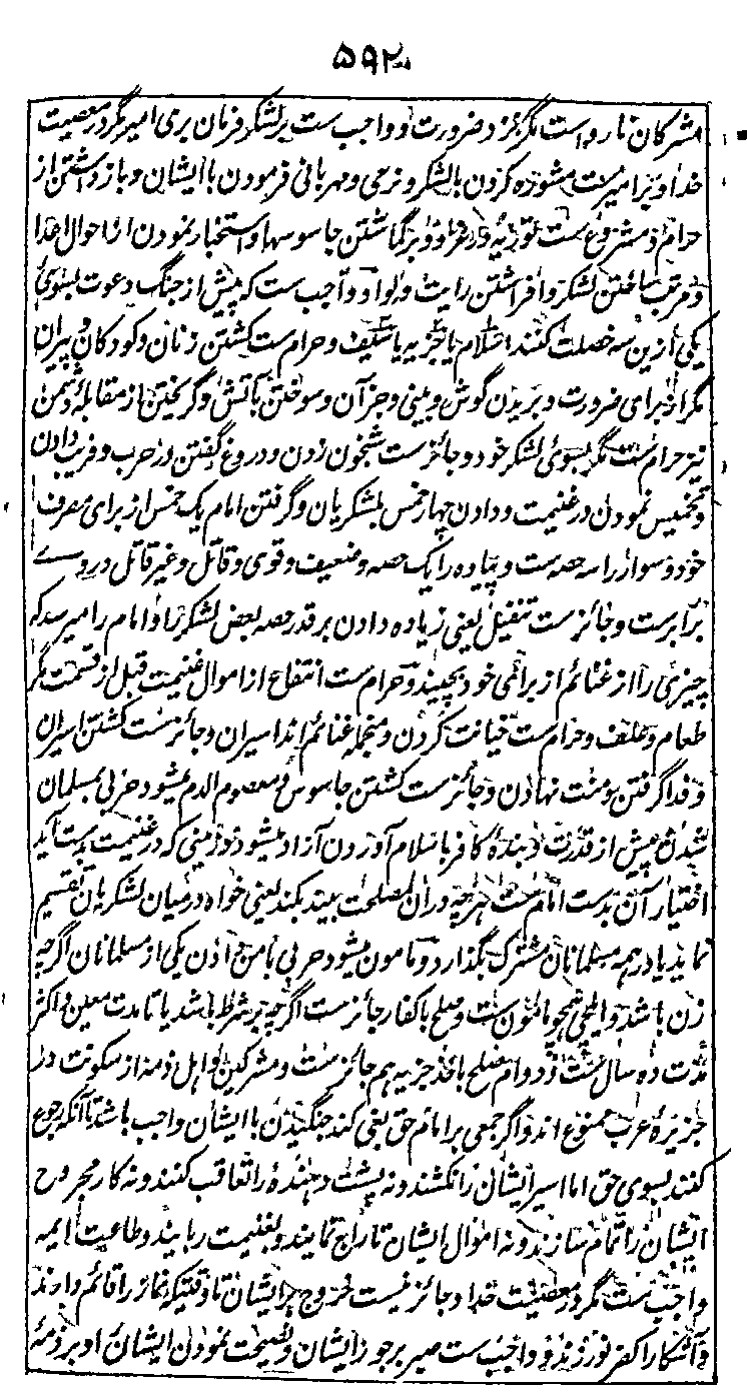 ۵۹۲
مشرکان نارواست مگر نزد ضرورت و واجب ست بر لشکر فرمان بری امیر مگر در معصیت
خدا و بر امیرست مشوره کردن بالشکر و نرمی و مهربانی فرمودن با ایشان و باز داشتن از
حرام و مشروع ست توریه در غزا و و برگماشتن جاسوسها و استخبار نمودن از احوال اعدا
و مرتب ساختن لشکر و افراشتن رایت و لوا و واجب ست که پیش از جنگ دعوت بسوی
یکی ازین سه خصلت کنند اسلام یا جزیه یا سیف و حرام ست کشتن زنان و کودکان و پیران
مگر از برای ضرورت و بریدن گوش و بینی و جز آن و سوختن بآتش و گریختن از مقابلهٔ دشمن
نیز حرام ست مگر بسوی لشکر خود و جائزست شبخون زدن و دروغ گفتن در حرب و فریب دادن
و تخمیس نمودن در غنیمت و دادن چهار خمس بلشکریان و گرفتن امام یک خمس از برای مصرف
خود و سوار را سه حصه ست و پیاده را یک حصه و ضعیف و قوی و قاتل و غیر قاتل در وے
برابرست و جائزست تنفیل یعنی زیاده دادن بر قدر حصه بعض لشکر را و امام را میرسد که
چیزی را از غنائم از برای خود بچیند و حرام ست انتفاع از اموال غنیمت قبل از قسمت مگر
طعام و علف و حرام ست خیانت کردن و منجملهٔ غنائم اند اسیران و جائزست کشتن اسیران
و فدا گرفتن و منت نهادن و جائزست کشتن جاسوس و معصوم الدم میشود حربی بمسلمان
شدن پیش از قدرت و بندهٔ کافر باسلام آوردن آزاد میشود و زمینی که در غنیمت بدست آید
اختیار آن بدست امام ست هرچه دران مصلحت بیند بکند یعنی خواه در میان لشکریان تقسیم
نماید یا در همه مسلمانان مشترک بگذارد و مامون میشود حربی بامن دادن یکی از مسلمانان اگرچه
زن باشد و ایلچی همچو مامون ست و صلح با کفار جائزست اگرچه بر شرط باشد یا تا مدت معین و اکثر
مدت ده سال ست و دوام صلح باخذ جزیه هم جائزست و مشرکین و اهل ذمه از سکونت در
جزیرهٔ عرب ممنوع اند و اگر جمعی بر امام حق بغی کند جنگیدن با ایشان واجب باشد تا آنکه رجوع
کنند بسوی حق اما اسیر ایشان را نکشند و نه پشت دهنده را تعاقب کنند و نه کار مجروح
ایشان را تمام سازند و نه اموال ایشان تاراج نمایند و بغنیمت ربایند و طاعت ایمه
واجب ست مگر در معصیت خدا و جائز نیست خروج بر ایشان تا وقتیکه نماز را قائم دارند
و آشکارا کفر نورزند و واجب ست صبر بر جور ایشان و نصیحت نمودن ایشان او بر ذمهٔ